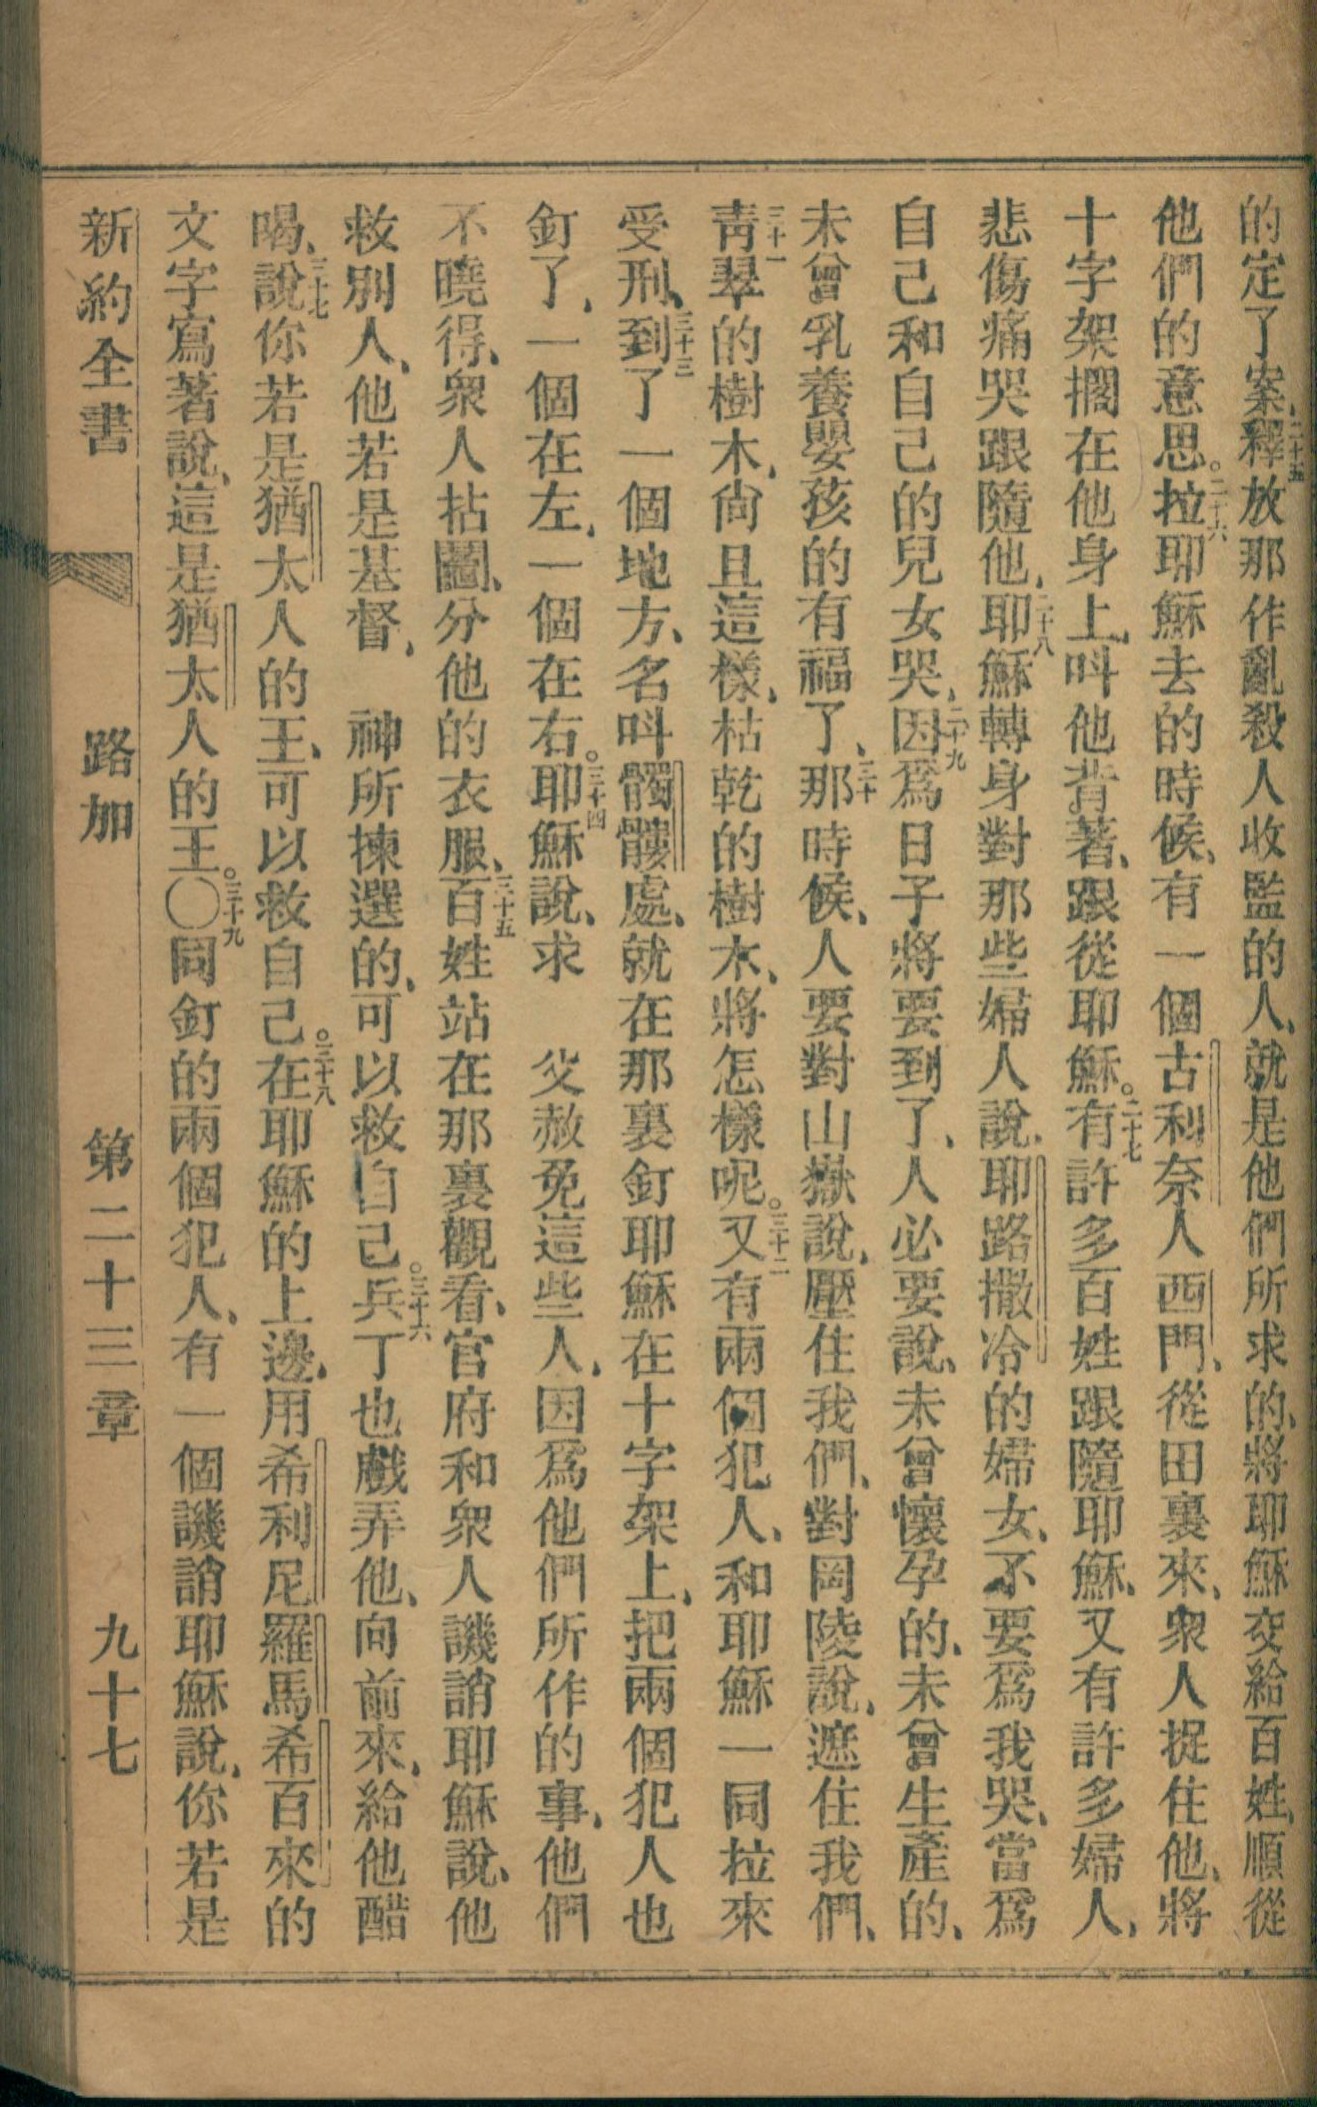 的定了案、二十五釋放那作亂殺人收監的人、就是他們所求的、將耶穌交給百姓、順從
他們的意思。二十六拉耶穌去的時候、有一個古利奈人西門、從田裏來、衆人捉住他、將
十字架擱在他身上、呌他背著、跟從耶穌。二十七有許多百姓跟隨耶穌、又有許多婦人、
悲傷痛哭跟隨他、二十八耶穌轉身對那些婦人說、耶路撒冷的婦女、不要爲我哭、當爲
自己和自己的兒女哭、二十九因爲日子將要到了、人必要說、未曾懷孕的、未曾生產的、
未曾乳養嬰孩的有福了、三十那時候、人要對山嶽說、壓住我們、對岡陵說、遮住我們、
三十一青翠的樹木、尙且這樣、枯乾的樹木、將怎樣呢。三十二又有兩個犯人、和耶穌一同拉來
受刑、三十三到了一個地方、名呌髑髏處、就在那裏釘耶穌在十字架上、把兩個犯人也
釘了、一個在左、一個在右。三十四耶穌說、求 父赦免這些人、因爲他們所作的事、他們
不曉得、衆人拈鬮、分他的衣服、三十五百姓站在那裏觀看、官府和衆人譏誚耶穌說、他
救別人、他若是基督、 神所揀選的、可以救自己。三十六兵丁也戲弄他、向前來、給他醋
喝、三十七說你若是猶太人的王、可以救自己。三十八在耶穌的上邊、用希利尼羅馬希百來的
文字寫著說、這是猶太人的王。〇三十九同釘的兩個犯人、有一個譏誚耶穌說、你若是
新約全書 路加 第二十三章 九十七